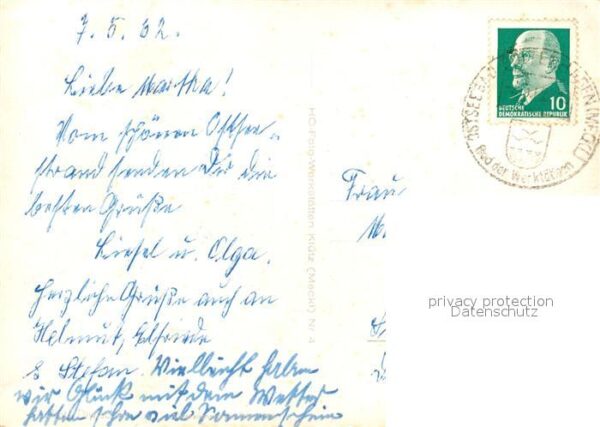 7. 5. 62.
Liebe Martha!
Vom schönen Ostsee-
strand senden Dir die
besten Grüße
Liesel u. Olga.
Herzliche Grüße auch an
Helmut, Elfriede
& Stefan. Vielleicht haben
wir Glück mit dem Wetter
hatten schon viel Sonnenschein
HO-Foto-Werkstätten Klütz (Meckl) Nr. 4
10
DEUTSCHE
DEMOKRATISCHE REPUBLIK
OSTSEEBAD
Bad der Werktätigen
Frau
M.
privacy protection
Datenschutz